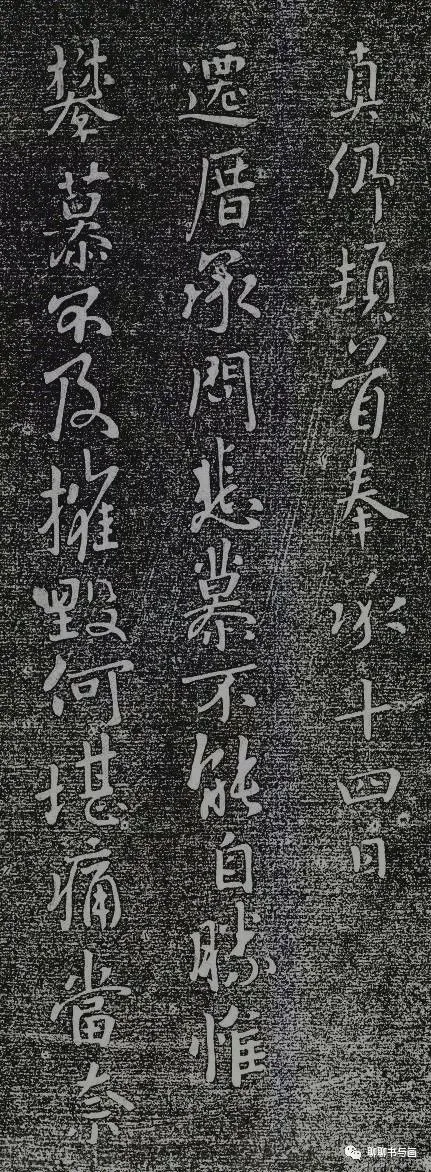 真卿頓首奉承十四日
遷厝承問悲慕不能自勝惟
攀慕不及摧毀何堪痛當奈